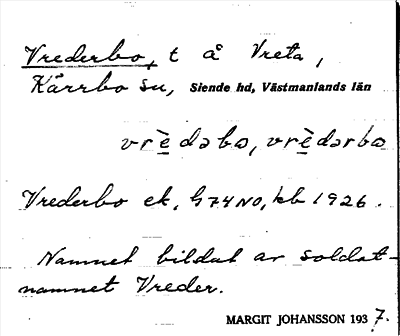 Vrederbo, t å Vreta,
Kärrbo sn, Siende hd, Västmanlands län
vrèdəbω, vrèdərbω
Vrederbo ek. G74NO, kb 1926.
Namnet bildat av soldat-
namnet Vreder.
MARGIT JOHANSSON 1937.